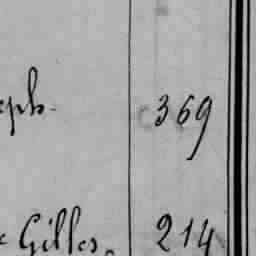 eph. 369
Gilles 214